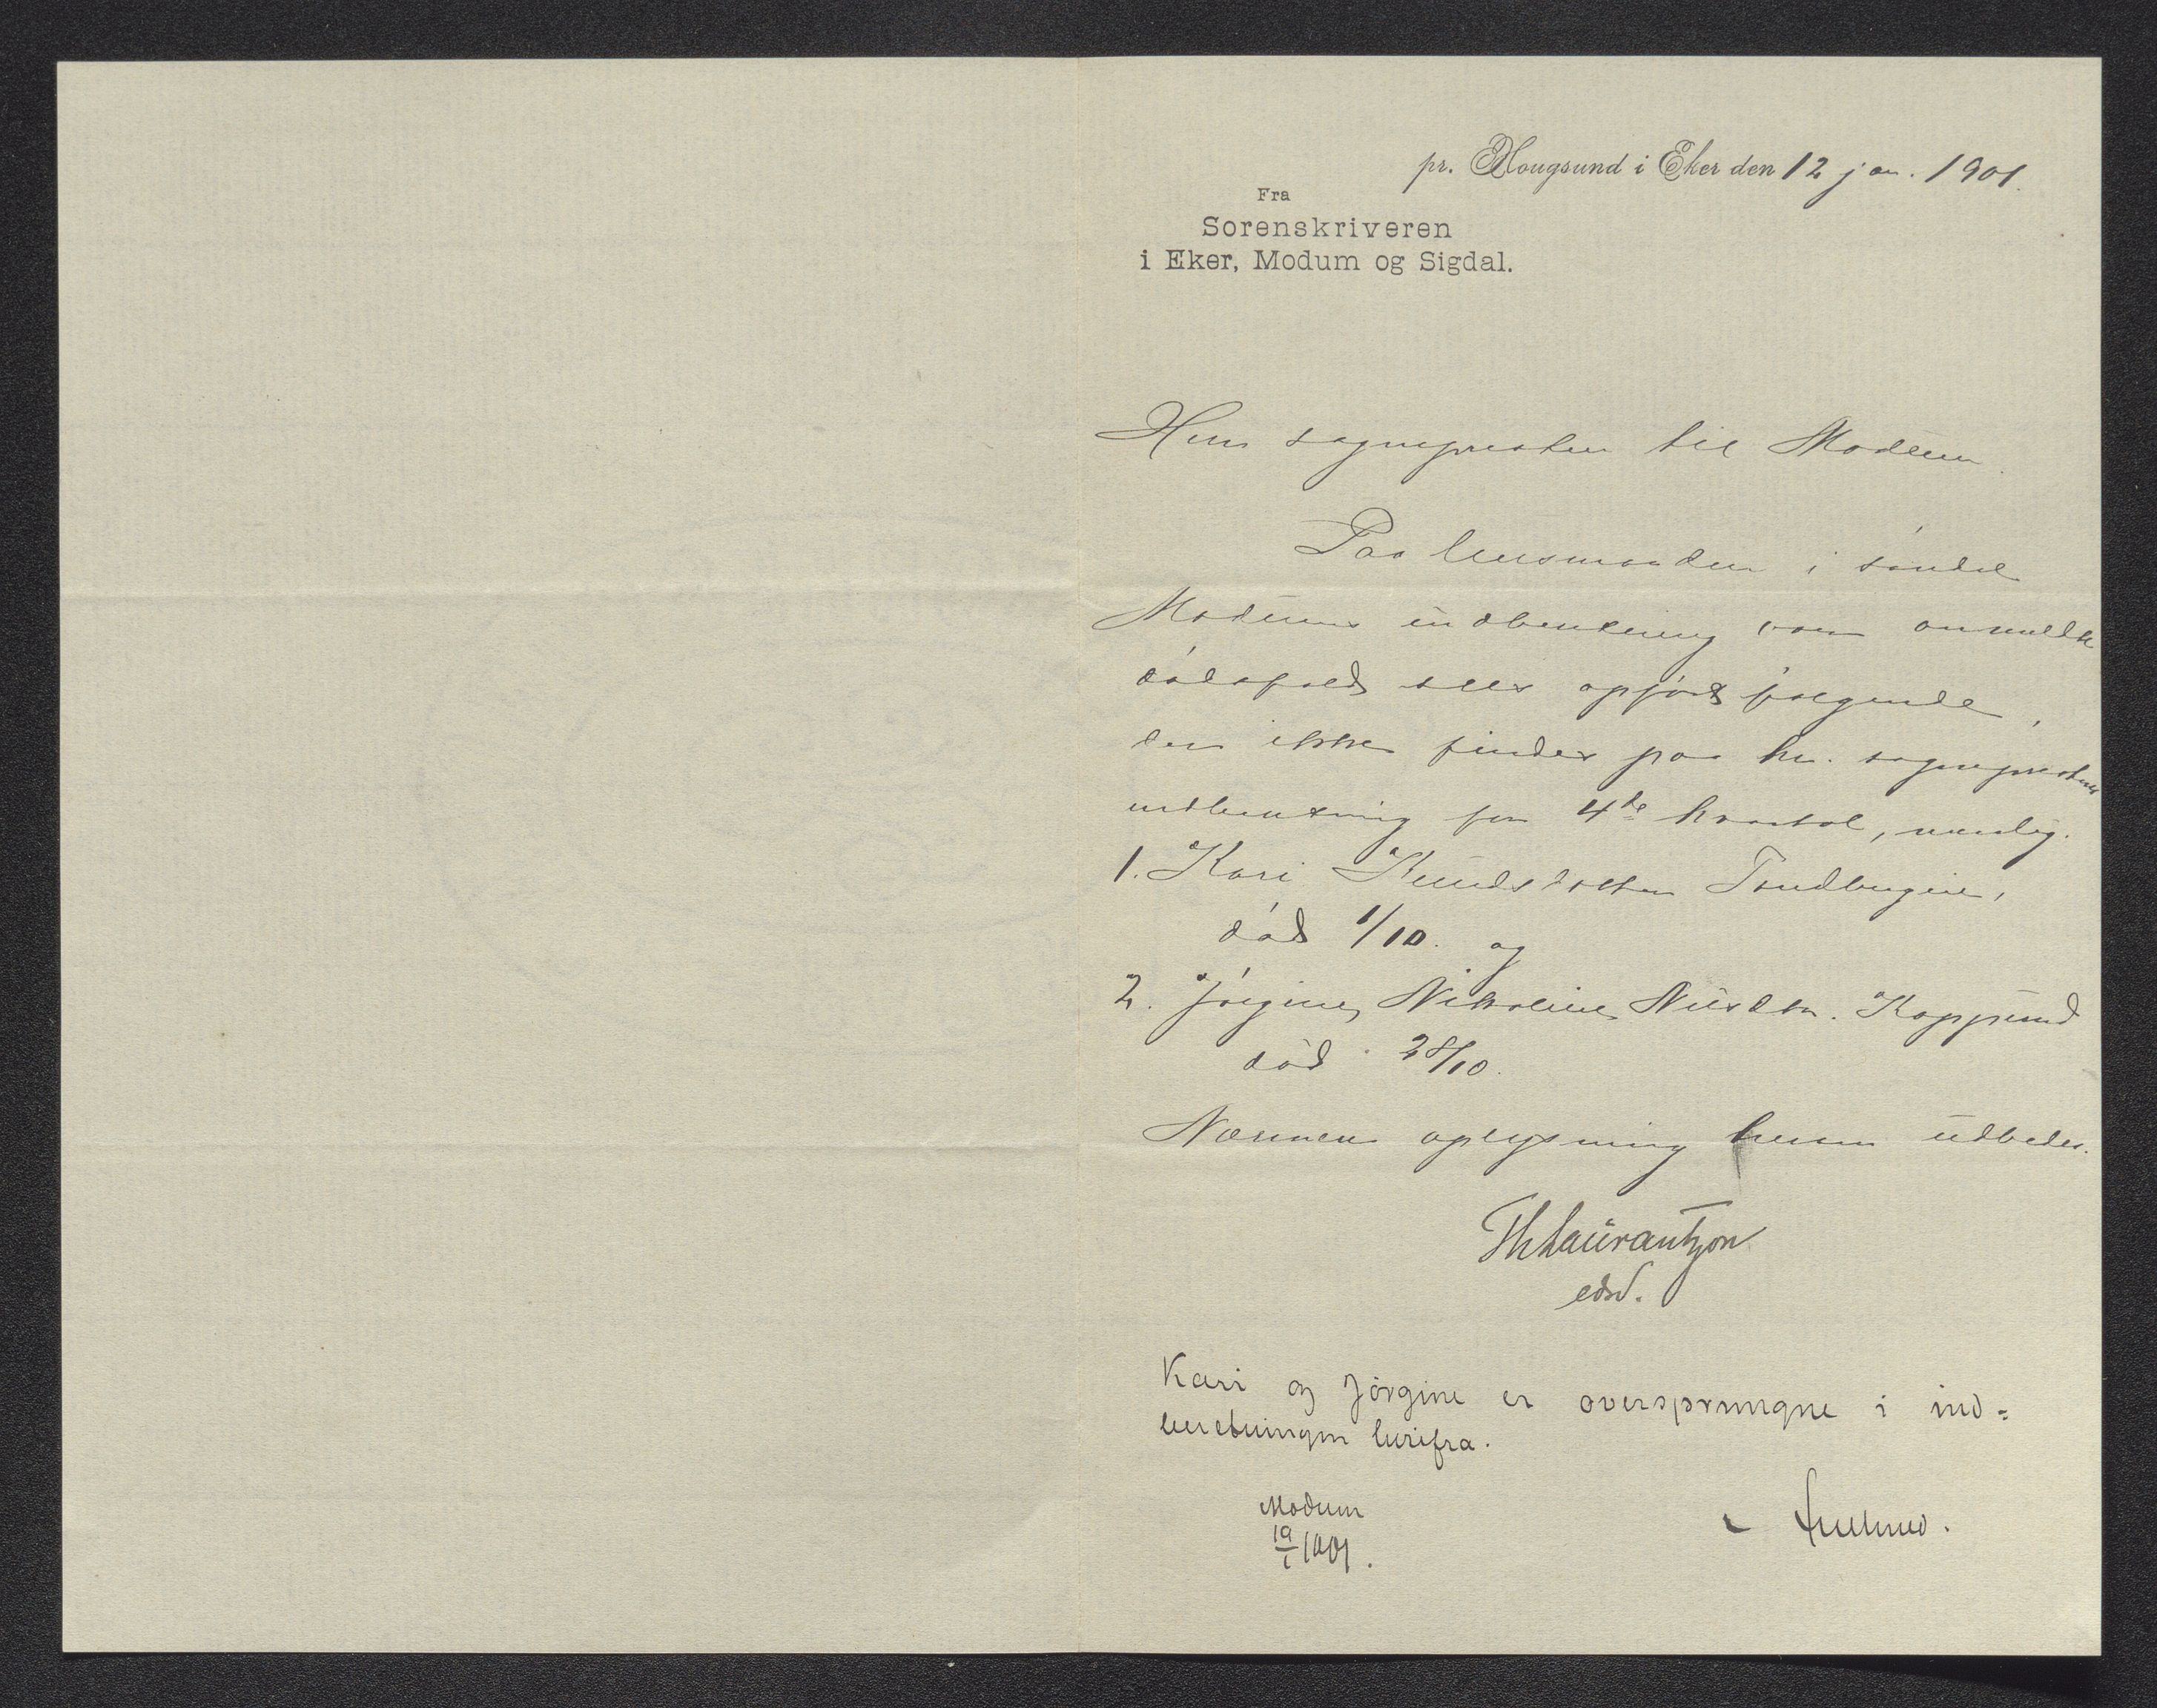 pr. Hougsund i Eker den 12 jan. 1901.
Fra
Sorenskriveren
i Eker, Modum og Sigdal.
Herr sognepresten til Modum.
Paa lensmanden i søndre
Modums indberetning om anmeldte
dødsfald sees opført følgende,
der ikke findes paa hr. sogneprestens
indberetning for 4de kvartal, nemlig.
1. Kari Knudsdatter
død 1/10. og
2. Jørgine Nikoline Nilsdtr. Kopperud
død 28/10.
Nærmere oplysning herom udbedes.
Th Laurantzon
edsv.
Kari og Jørgine er oversprungne i ind=
beretningen herifra.
Modum
19/1 1901.